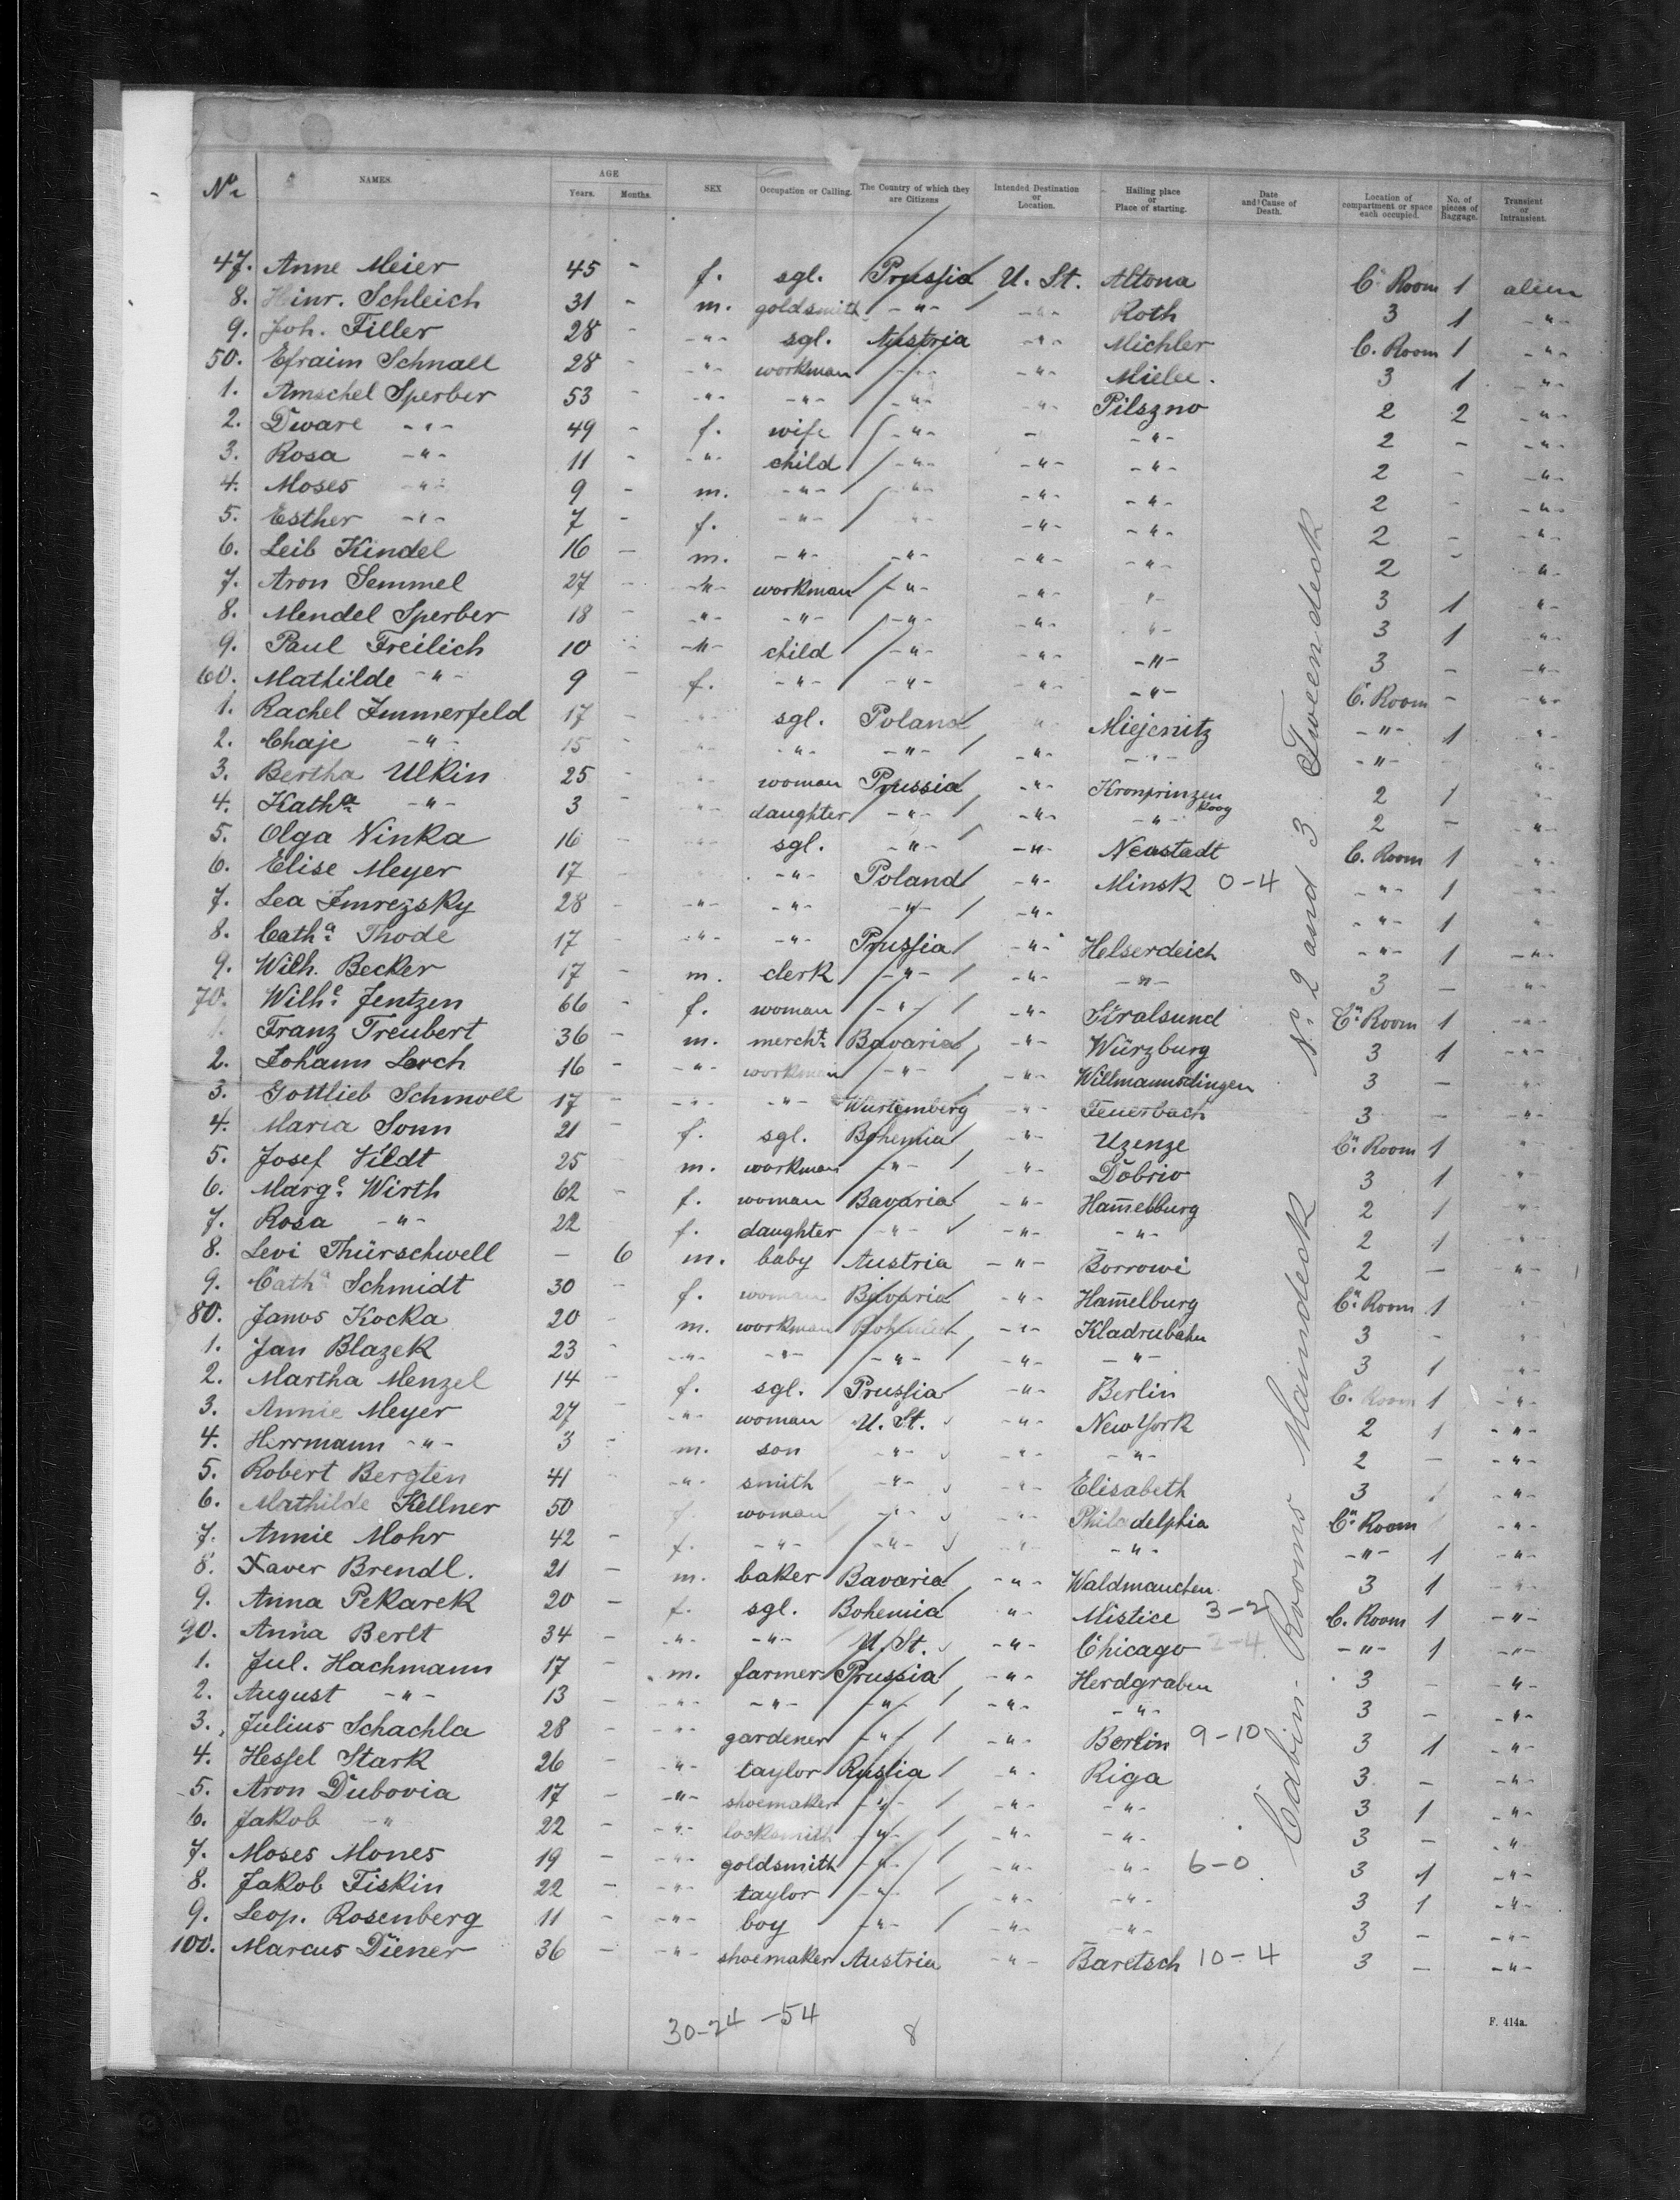 No. NAMES. AGE Years. Months. SEX Occupation or Calling. The Country of which they are Citizens Intended Destination or Location. Hailing place or Place of starting. Date and Cause of Death. Location of compartment or space each occupied. No. of pieces of Baggage. Transient or Intransient.
47. Anne Meier 45 - f. sgl. Prussia U. St. Altona C. Room 1 alien
8. Heinr. Schleich 31 - m. goldsmith -"- -"- Roth 3 1 -"-
9. Joh. Filler 28 - -"- sgl. Austria -"- Michler C. Room 1 -"-
50. Efraim Schnall 28 - -"- workman -"- -"- Mielec. 3 1 -"-
1. Amschel Sperber 53 - -"- -"- -"- -"- Pilszno 2 2 -"-
2. Dware -"- 49 - f. wife -"- - -"- 2 - -"-
3. Rosa -"- 11 - -"- child -"- -"- -"- 2 - -"-
4. Moses -"- 9 - m. -"- -"- -"- -"- 2 - -"-
5. Esther -"- 7 - f. -"- -"- -"- -"- 2 - -"-
6. Leib Kindel 16 - m. -"- -"- -"- -"- 2 - -"-
7. Aron Semmel 27 - -"- workman -"- -"- -"- 3 1 -"-
8. Mendel Sperber 18 - -"- -"- -"- -"- -"- 3 1 -"-
9. Paul Freilich 10 - -"- child -"- -"- -"- 3 - -"-
60. Mathilde -"- 9 - f. -"- -"- -"- -"- C. Room - -"-
1. Rachel Immerfeld 17 - -"- sgl. Poland -"- Miejenitz -"- 1 -"-
2. Chaje -"- 15 - -"- -"- -"- -"- -"- -"- -"-
3. Bertha Ulkin 25 - -"- woman Prussia -"- Kronprinzen Koog 2 1 -"-
4. Katha -"- 3 - -"- daughter -"- -"- -"- 2 - -"-
5. Olga Ninka 16 - -"- sgl. -"- -"- Neustadt C. Room 1 -"-
6. Elise Meyer 17 - -"- -"- Poland -"- Minsk 0-4 -"- 1 -"-
7. Lea Imrezsky 28 - -"- -"- -"- -"- -"- 1 -"-
8. Catha Thode 17 - -"- -"- Prussia -"- Helserdeich -"- 1 -"-
9. Wilh. Becker 17 - m. clerk -"- -"- -"- 3 - -"-
70. Wilhe Jentzen 66 - f. woman -"- -"- Stralsund Cn. Room 1 -"-
1. Franz Treubert 36 - m. mercht. Bavaria -"- Würzburg 3 1 -"-
2. Johann Lerch 16 - -"- workman -"- -"- Willmannsdingen 3 - -"-
3. Gottlieb Schmoll 17 - -"- -"- Würtemberg -"- Feuerbach 3 - -"-
4. Maria Sonn 21 - f. sgl. Bohemia -"- Uzenze Cn. Room 1 -"-
5. Josef Vildt 25 - m. workman -"- -"- Dobriv 3 1 -"-
6. Marge Wirth 62 - f. woman Bavaria -"- Ham̄elburg 2 1 -"-
7. Rosa -"- 22 f. daughter -"- -"- -"- 2 1 -"-
8. Levi Thürschwell - 6 m. baby Austria -"- Borrowi 2 - -"-
9. Catha Schmidt 30 - f. woman Bavaria -"- Ham̄elburg Cn. Room 1 -"-
80. Janos Kocka 20 - m. workman Bohemia -"- Kladrubahn 3 - -"-
1. Jan Blazek 23 - -"- -"- -"- -"- -"- 3 1 -"-
2. Martha Menzel 14 - f. sgl. Prussia -"- Berlin C. Room 1 -"-
3. Annie Meyer 27 - -"- woman U. St. -"- New York 2 1 -"-
4. Herrmann -"- 3 - m. son -"- -"- -"- 2 - -"-
5. Robert Bergten 41 -"- smith -"- -"- Elisabeth 3 1 -"-
6. Mathilde Kellner 50 f. woman -"- -"- Philadelphia Cn. Room -"-
7. Annie Mohr 42 - f. -"- -"- -"- -"- -"- 1 -"-
8. Xaver Brendl. 21 - m. baker Bavaria -"- Waldmauchen 3 1 -"-
9. Anna Pekarek 20 - f. sgl. Bohemia -"- Mistice 3-2 C. Room 1 -"-
90. Anna Berlt 34 - -"- -"- U. St. -"- Chicago 2-4 -"- 1 -"-
1. Jul. Hachmann 17 - m. farmer Prussia -"- Herdgraben 3 - -"-
2. August -"- 13 - -"- -"- -"- -"- -"- 3 - -"-
3. Julius Schachla 28 - -"- gardener -"- -"- Berlin 9-10 3 1 -"-
4. Hessel Stark 26 -"- taylor Russia -"- Riga 3 - -"-
5. Aron Dubovia 17 - -"- shoemaker -"- -"- -"- 3 1 -"-
6. Jakob -"- 22 - -"- locksmith -"- -"- -"- 3 - -"-
7. Moses Mones 19 - -"- goldsmith -"- -"- -"- 6-0 3 1 -"-
8. Jakob Fiskin 22 - -"- taylor -"- -"- -"- 3 1 -"-
9. Leop. Rosenberg 11 - -"- boy -"- -"- -"- 3 - -"-
100. Marcus Diener 36 - -"- shoemaker Austria -"- Baretsch 10-4 3 - -"-
Cabin-Rooms Maindeck No. 2 and 3 Tweendeck
30-24 -54 8
F. 414a.